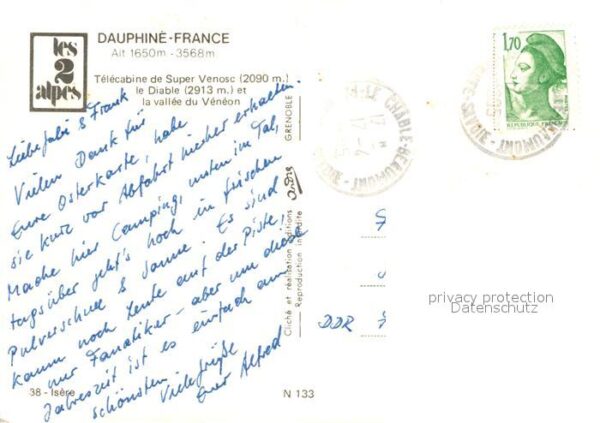 les
2
alpes
DAUPHINÉ-FRANCE
Alt 1650m - 3568m
Télécabine de Super Venosc (2090 m.)
le Diable (2913 m.) et
la vallée du Vénéon
Liebe Gabi & Frank
Vielen Dank für
Eure Osterkarte, habe
sie kurz vor Abfahrt hierher erhalten.
Mache hier Camping, unten im Tal,
tagsüber geht's hoch in frischen
Pulverschnee & Sonne. Es sind
kaum noch Leute auf der Piste,
nur Fanatiker - aber um diese
Jahreszeit ist es einfach am
schönsten. Viele Grüße
Euer Alfred
38 - Isère
N 133
GRENOBLE
Cliché et réalisation éditions
Reproduction interdite
DDR
1,70
REPUBLIQUE FRANÇAISE
LE CHABLE-BEAUMONT
HTE-SAVOIE
privacy protection
Datenschutz